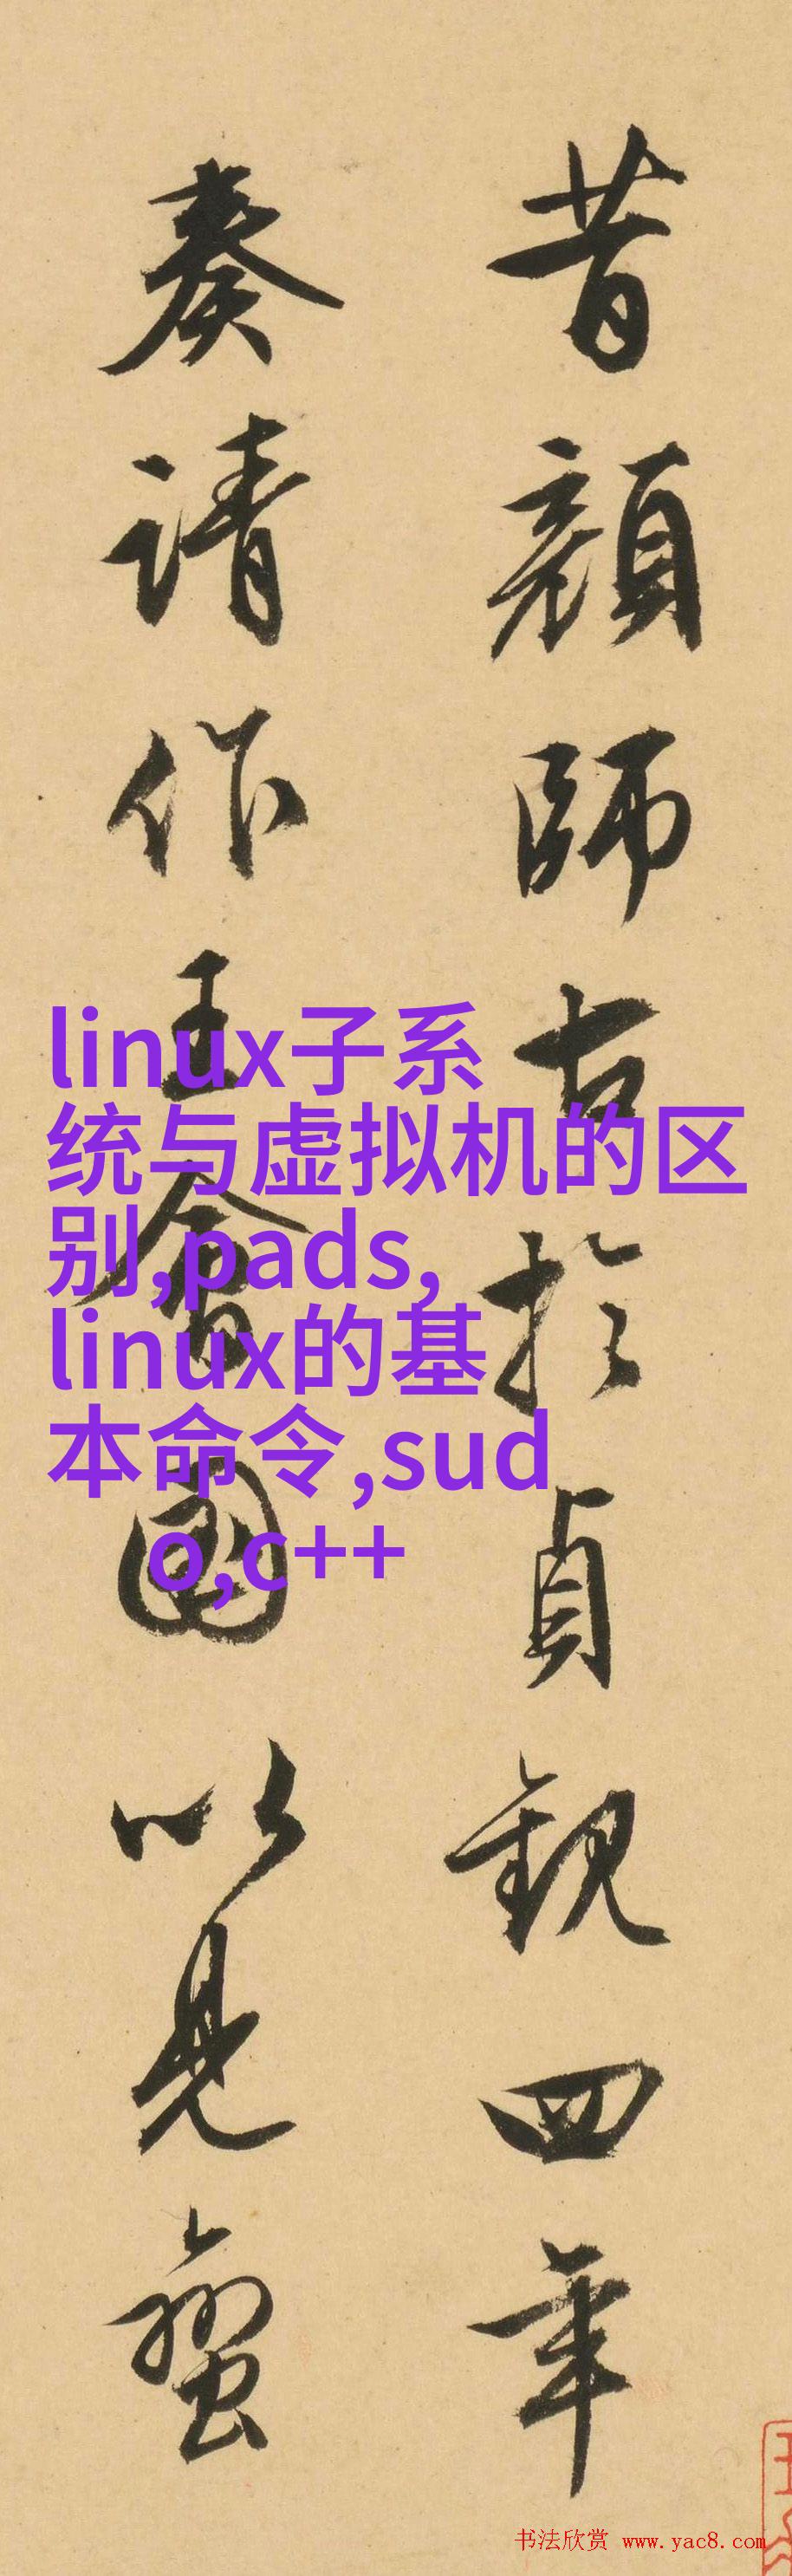 昔顔師古於貞觀四年
奏請作王會圖以見蠻
linux子系
统与虚拟机的区
别,pads,
linux的基
本命令,sud
o,c++
书法欣赏 www.yac8.com